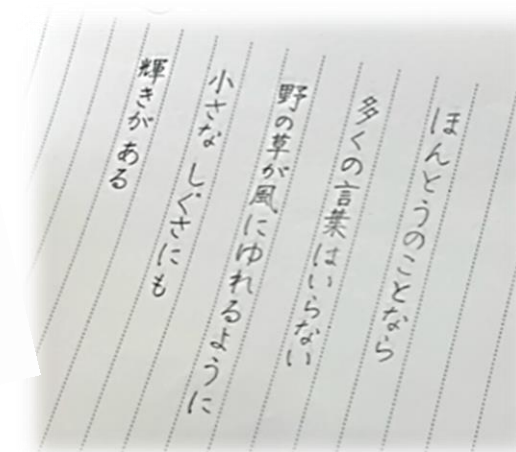 ほんとうのことなら
多くの言葉はいらない
野の草が風にゆれるように
小さな しぐさにも
輝きが ある